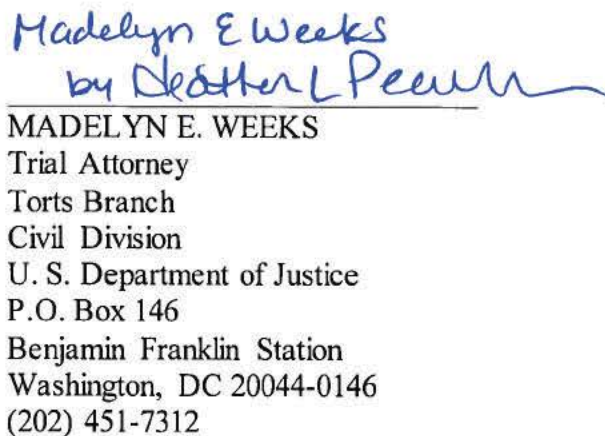 Madelyn E Weeks
by Heather L
MADELYN E. WEEKS
Trial Attorney
Torts Branch
Civil Division
U. S. Department of Justice
P.O. Box 146
Benjamin Franklin Station
Washington, DC 20044-0146
(202) 451-7312